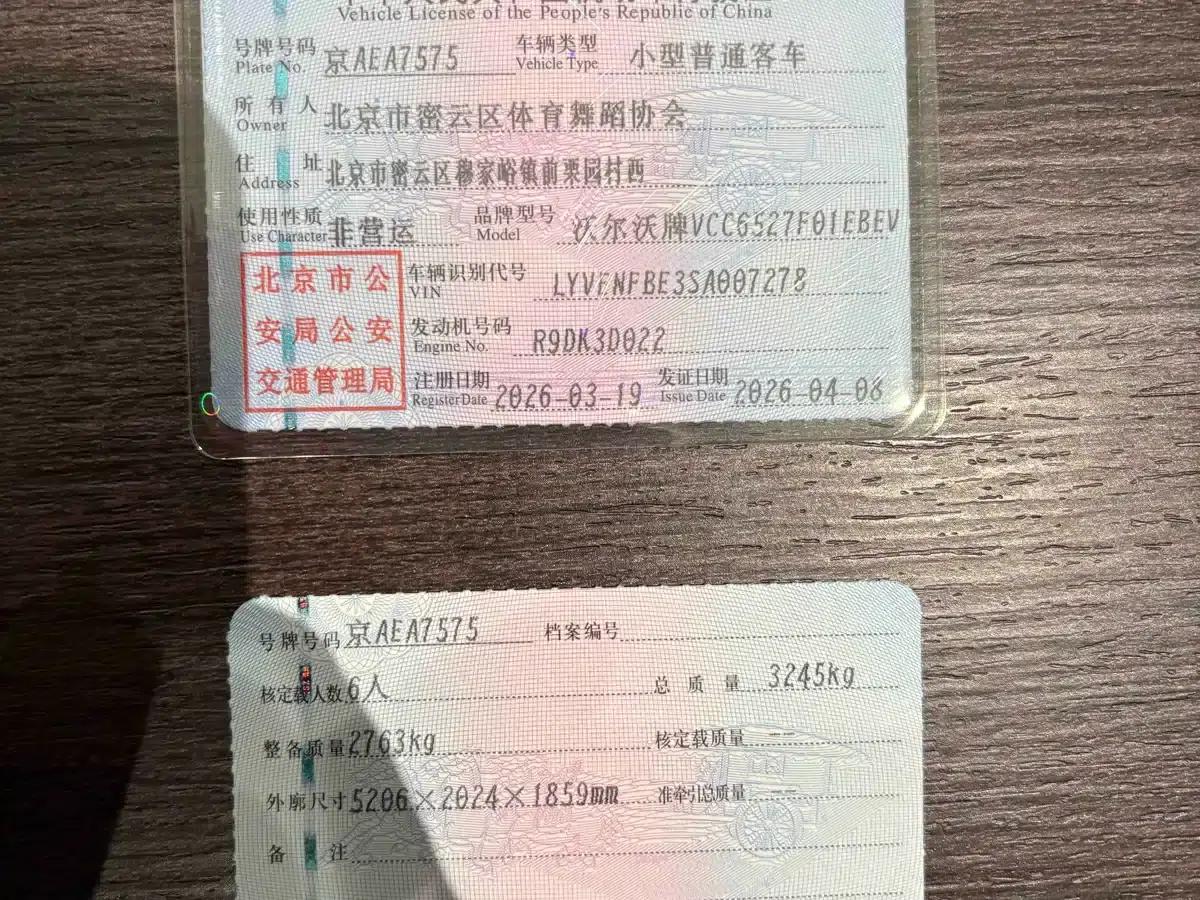 Vehicle License of the People's Republic of China
号牌号码 Plate No. 京AEA7575 车辆类型 Vehicle Type 小型普通客车
所有人 Owner 北京市密云区体育舞蹈协会
住址 Address 北京市密云区穆家峪镇前栗园村西
使用性质 Use Character 非营运 品牌型号 Model 沃尔沃牌VCC6527F01EBEV
北京市公
安局公安
交通管理局
车辆识别代号 VIN LYVFNFBE3SA007278
发动机号码 Engine No. R9DK3D022
注册日期 Register Date 2026-03-19 发证日期 Issue Date 2026-04-08
号牌号码 京AEA7575 档案编号
核定载人数 6人 总质量 3245kg
整备质量 2763kg 核定载质量 --
外廓尺寸 5206×2024×1859mm 准牵引总质量 --
备注